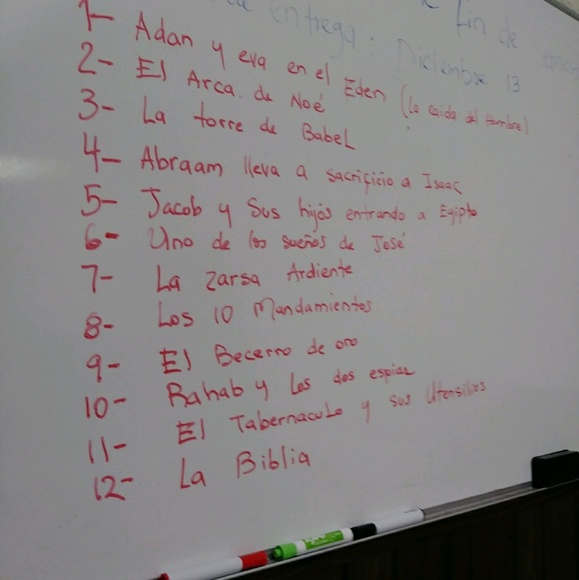 de entrega: Diciembre 13
fin de
1- Adan y eva en el Eden (la caida del Hombre)
2- El Arca de Noé
3- La torre de Babel
4- Abraam lleva a sacrificio a Isaac
5- Jacob y Sus hijos entrando a Egipto
6- Uno de los sueños de José
7- La Zarsa Ardiente
8- Los 10 Mandamientos
9- El Becerro de oro
10- Rahab y Los dos espias
11- El Tabernaculo y sus Utensilios
12- La Biblia